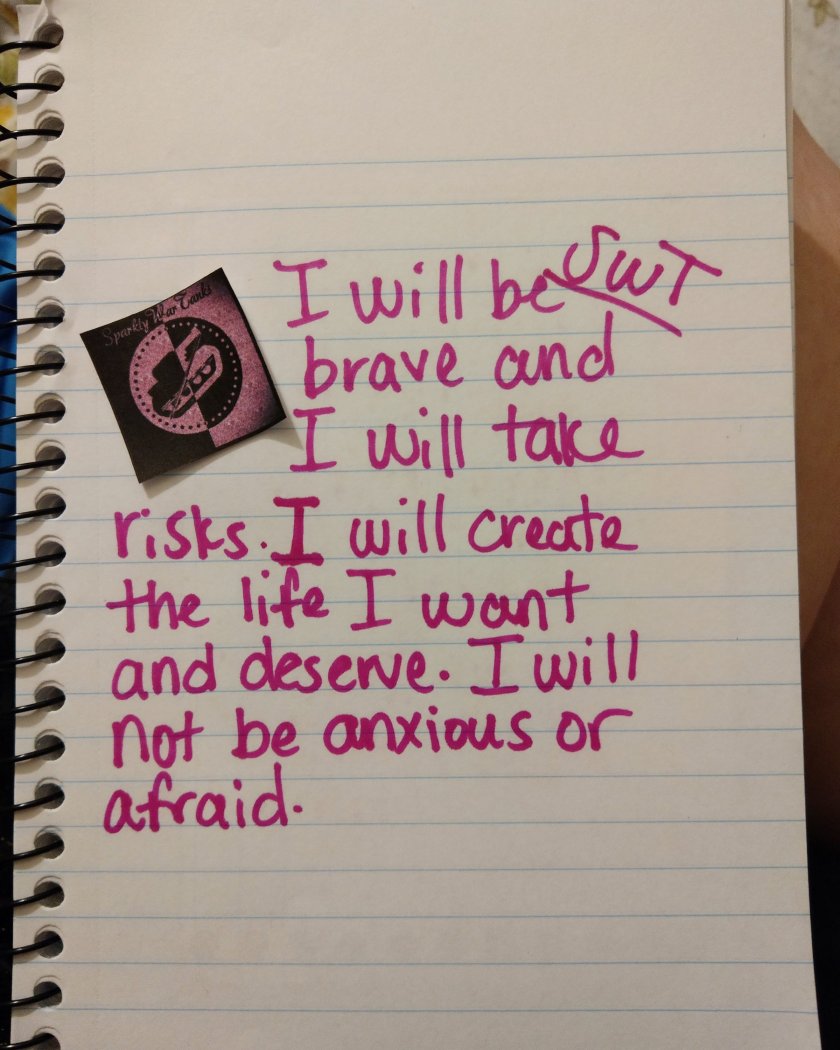 SWT
I will be
brave and
I will take
risks. I will create
the life I want
and deserve. I will
not be anxious or
afraid.
Sparkly War Tanks